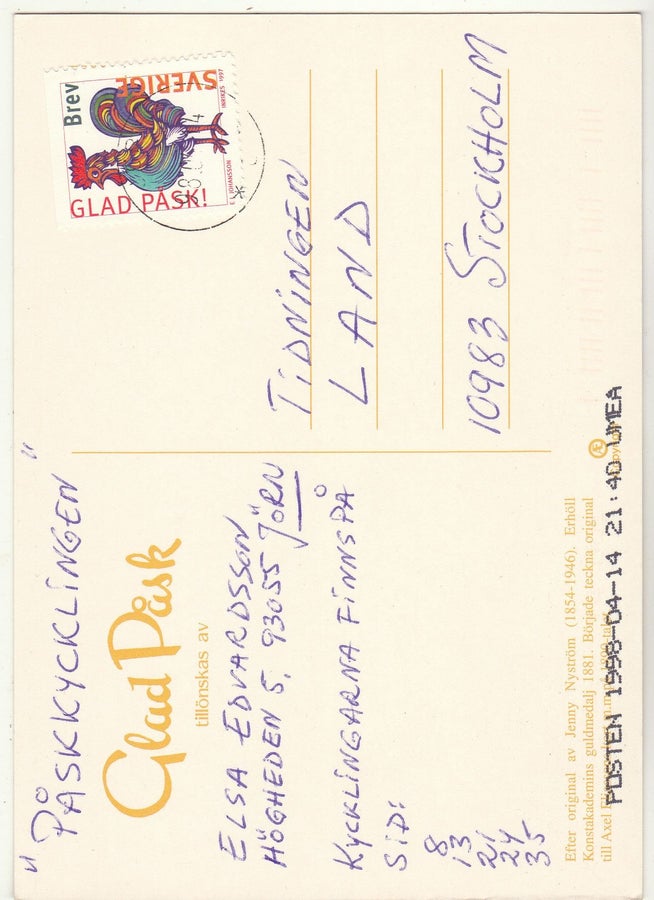 "PÅSKKYCKLINGEN"
Glad Påsk
tillönskas av
ELSA EDVARDSSON
HÖGHEDEN 5, 93055 JÖRN
KYCKLINGARNA FINNS PÅ
SID:
8
13
21
24
35
Efter original av Jenny Nyström (1854-1946). Erhöll
Konstakademins guldmedalj 1881. Började teckna original
till Axel
POSTEN 1998-04-14 21:40 UMEA
Brev
SVERIGE
GLAD PÅSK!
E. JOHANSSON
INRIKES 1997
TIDNINGEN
LAND
10983 STOCKHOLM